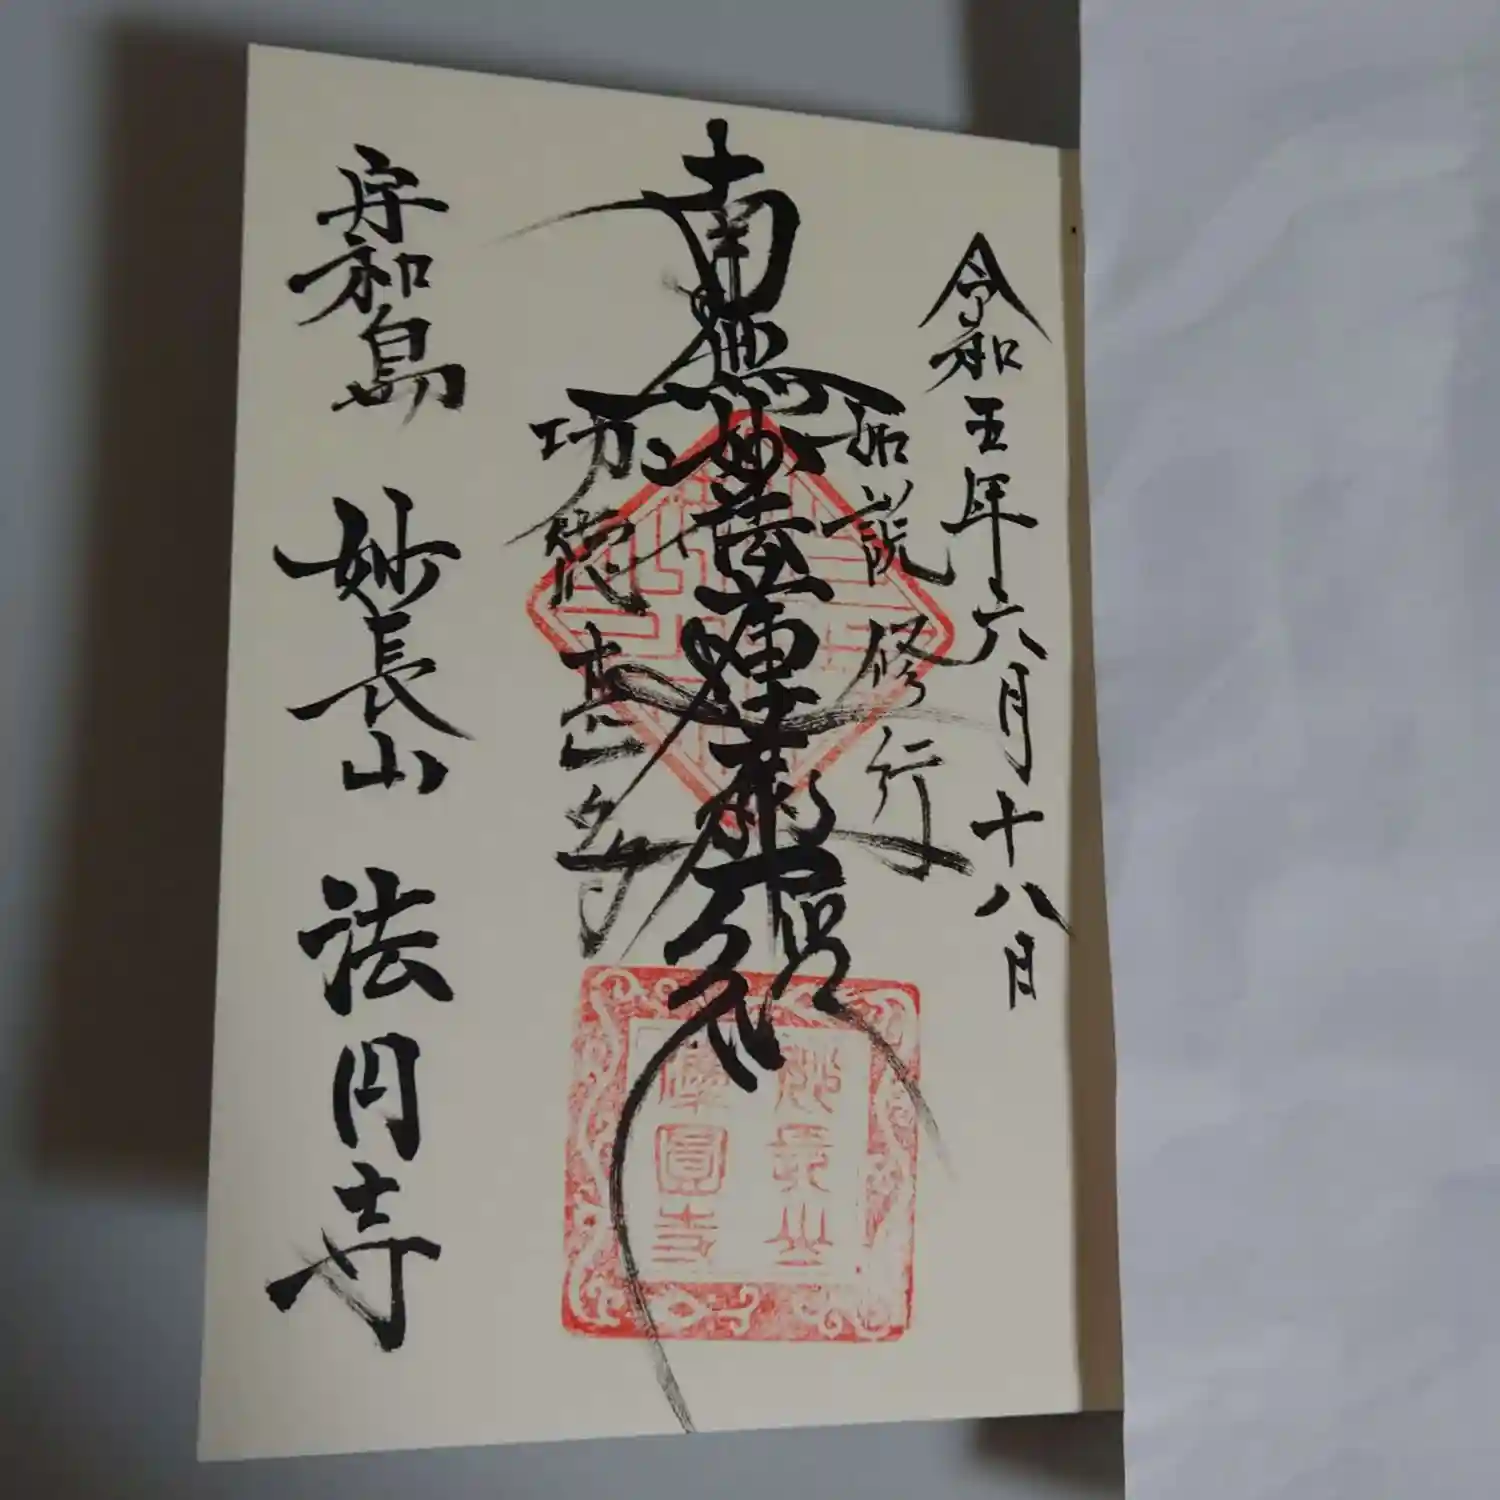 令和五年六月十八日
如説修行
南無妙法蓮華経
功徳甚多
宇和島 妙長山 法円寺
妙長山
法圓寺